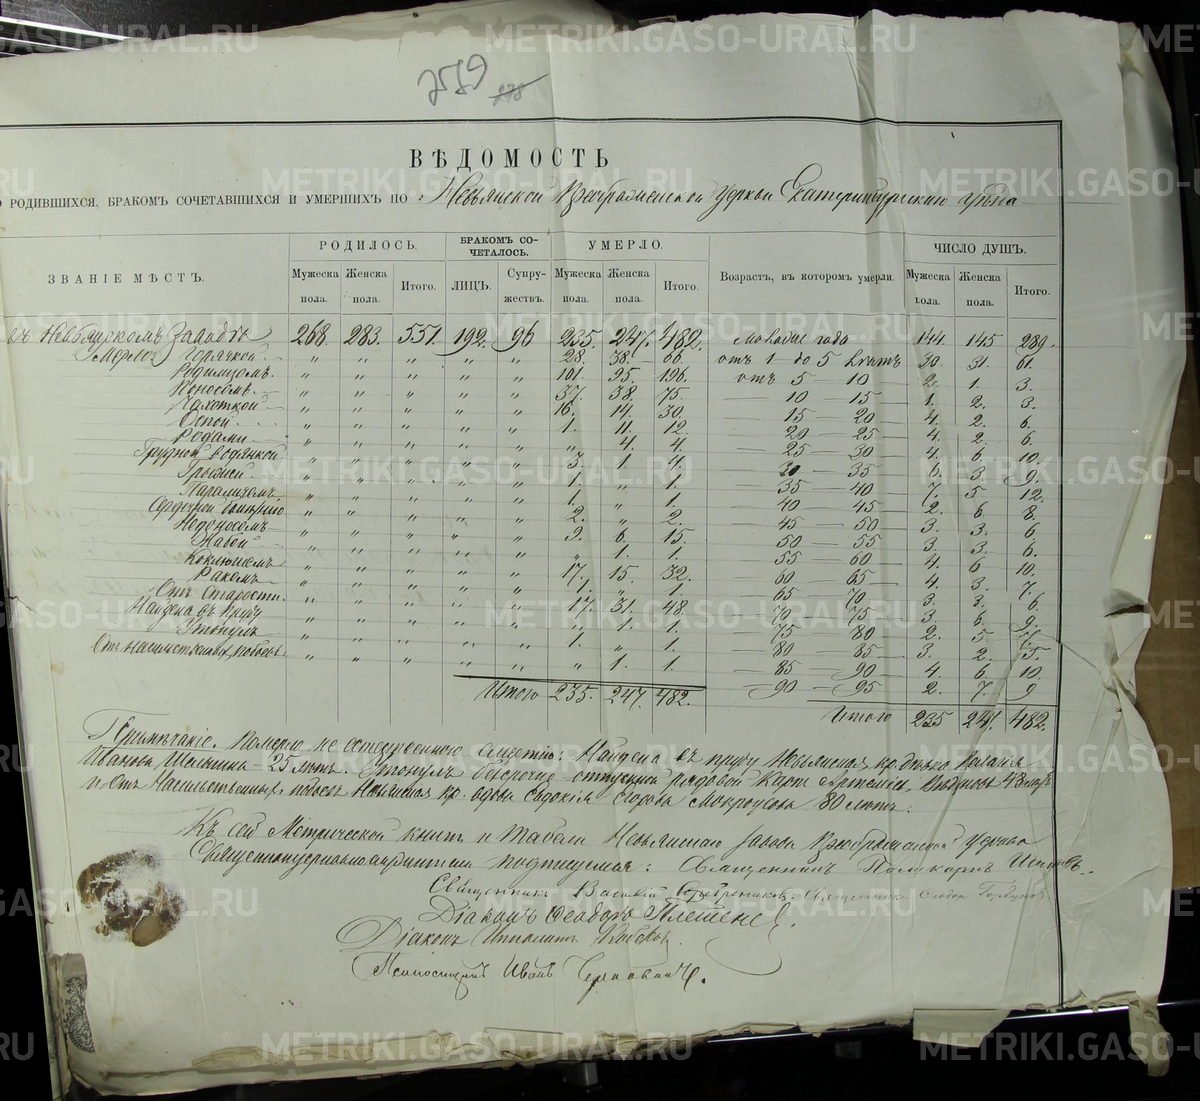 259 278
ВѢДОМОСТЬ
О РОДИВШИХСЯ, БРАКОМЪ СОЧЕТАВШИХСЯ И УМЕРШИХЪ ПО Невьянской Преображенской церкви Екатеринбургскаго уѣзда
ЗВАНІЕ МѢСТЪ. РОДИЛОСЬ. БРАКОМЪ СО-ЧЕТАЛОСЬ. УМЕРЛО. Возрастъ, въ которомъ умерли. ЧИСЛО ДУШЪ.
Мужеска пола. Женска пола. Итого. ЛИЦЪ. Супру-жествъ. Мужеска пола. Женска пола. Итого. Мужеска пола. Женска пола. Итого.
въ Невьянскомъ Заводѣ 268. 283. 551. 192. 96 235. 247. 482. моложе года 144. 145 289.
Умерло Горячкой " " " " " 28. 38. 66. отъ 1 до 5 лѣтъ 30. 31. 61.
Родимцомъ. " " " " " 101. 95. 196. отъ 5 — 10 — 2. 1. 3.
Поносомъ. " " " " " 37. 38. 75. — 10 — 15 1. 2. 3.
Чахоткой " " " " " 16. 14. 30. — 15 — 20 4. 2. 6.
Оспой " " " " " 1. 11. 12. — 20 — 25 4. 2. 6.
Родами " " " " " " 4. 4. — 25 — 30 4. 6. 10.
Грудной водянкой " " " " " 3. 1. 4. — 30 — 35 6. 3. 9.
Грыжей " " " " " 1. " 1. — 35 — 40 7. 5 12.
Параличемъ " " " " " 1. " 1. — 40 — 45 2. 6. 8.
Сердечной болѣзнію " " " " " 2. " 2. — 45 — 50 3. 3. 6.
Недоносомъ " " " " " 9. 6. 15. — 50 — 55 3. 3. 6.
Жабой " " " " " " 1. 1. — 55 — 60 4. 6 10.
Коклюшемъ " " " " " 17. 15. 32. — 60 — 65 4. 3. 7.
Ракомъ " " " " " 1. " 1. — 65 — 70 3. 3. 6.
Отъ Старости. " " " " " 17. 31. 48. — 70 — 75 3. 6. 9.
Найдена въ пруду " " " " " " 1. 1. — 75 — 80 2. 5 7.
Утонулъ " " " " 1. " 1. — 80 — 85 — 3. 2. 5.
Отъ насильственныхъ побоевъ " " " " 1. 1. — 85 — 90 4. 6. 10.
Итого 235. 247. 482. — 90 — 95 2. 7. 9
Итого 235 247. 482.
Примѣчаніе. Померло не естественною смертію: Найдена въ пруду Невьянская
Иванова 25 лѣтъ. Утонулъ рядовой Карпъ 48 лѣтъ
и Отъ Насильственныхъ побоевъ Невьянская кр. вдова Евдокія 80 лѣтъ.
Къ сей Метрической книгѣ и табели Невьянскаго завода Преображенской церкви
Священноцерковнослужители подписуемся: Священникъ Поликарпъ
Священникъ Василій Священникъ Ѳеодоръ
Діаконъ Ѳеодоръ Плетенев.
Діаконъ Ипполитъ
Псаломщикъ Иванъ
METRIKI.GASO-URAL.RU